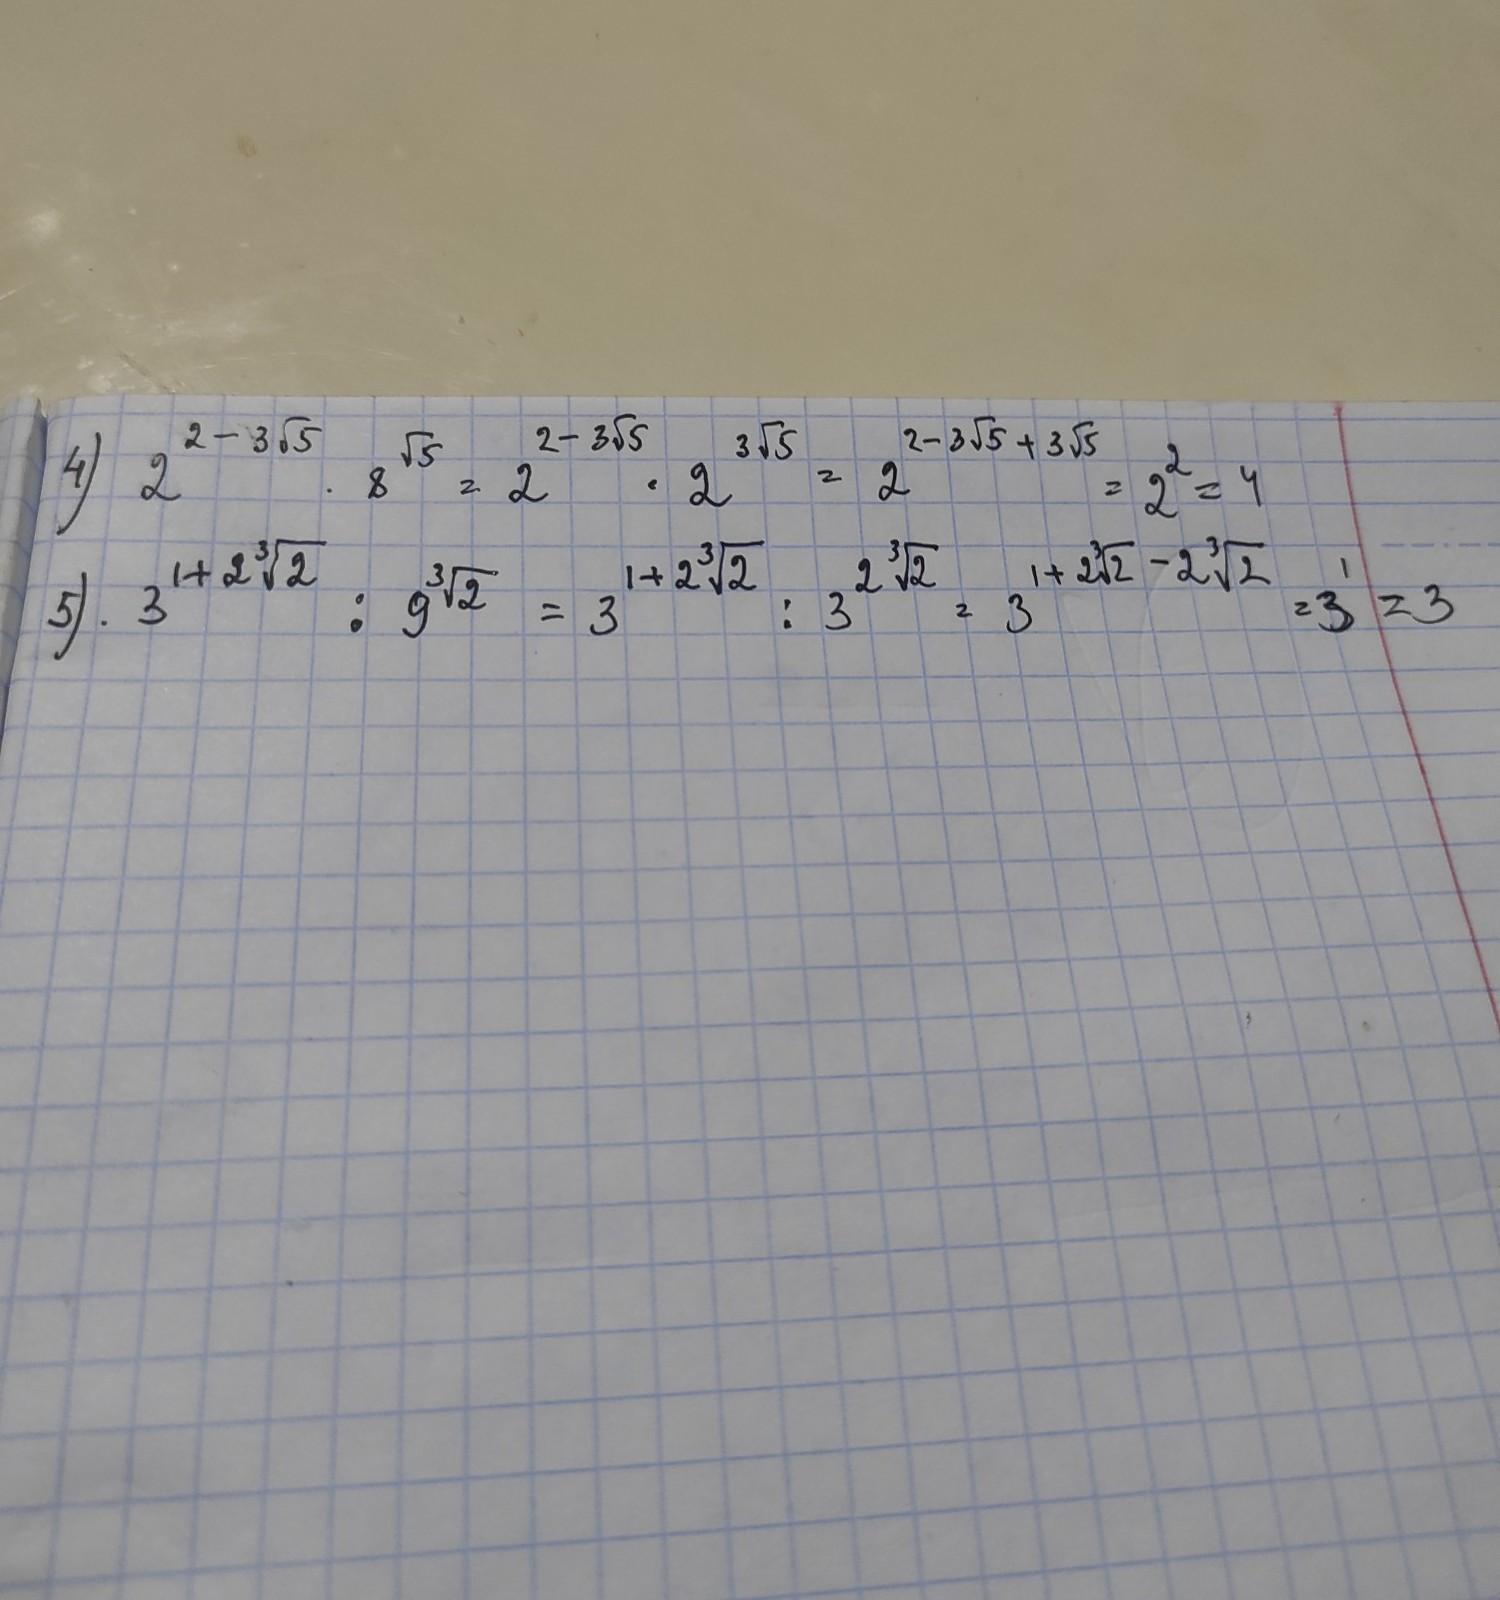 4) 2^{2-3√5} · 8^{√5} = 2^{2-3√5} · 2^{3√5} = 2^{2-3√5+3√5} = 2^2 = 4
5). 3^{1+2∛2} : 9^{∛2} = 3^{1+2∛2} : 3^{2∛2} = 3^{1+2∛2-2∛2} = 3^1 = 3